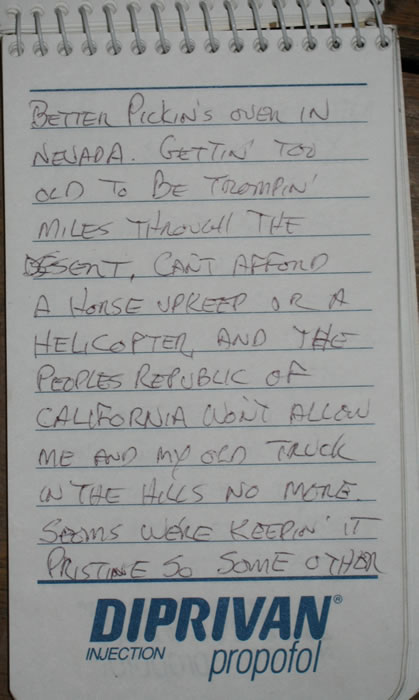 BETTER PICKIN'S OVER IN
NEVADA. GETTIN' TOO
OLD TO BE TROMPIN'
MILES THROUGH THE
DESERT, CAN'T AFFORD
A HORSE UPKEEP OR A
HELICOPTER, AND THE
PEOPLES REPUBLIC OF
CALIFORNIA WON'T ALLOW
ME AND MY OLD TRUCK
IN THE HILLS NO MORE.
SEEMS WE'RE KEEPIN' IT
PRISTINE SO SOME OTHER
DIPRIVAN®
INJECTION propofol